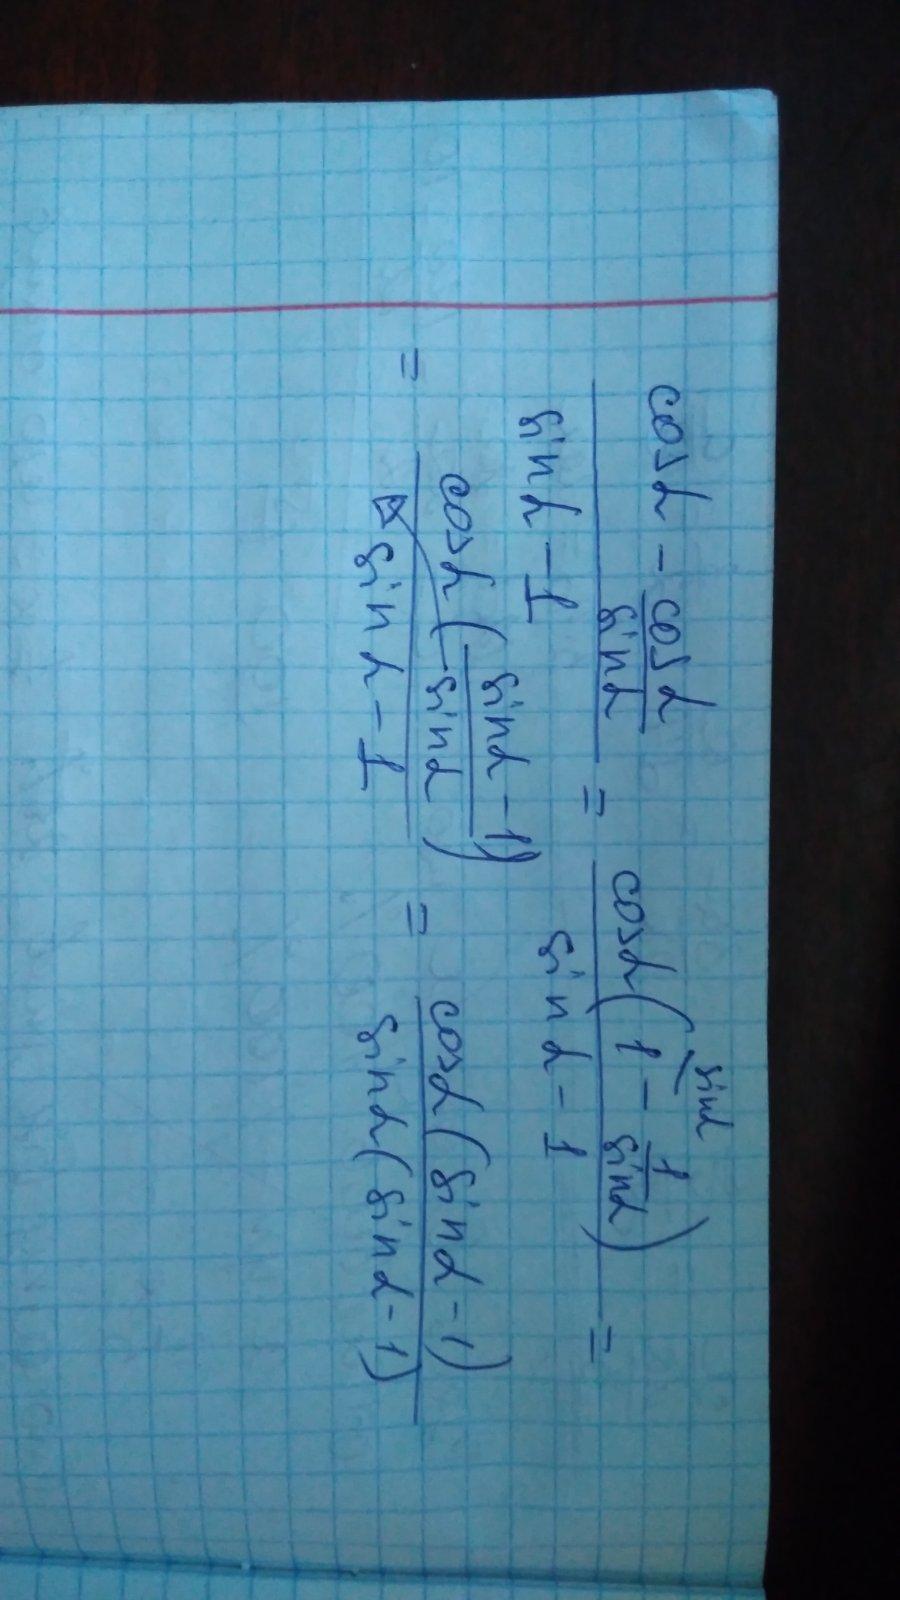 (cosα - cosα/sinα)/(sinα - 1) = cosα(1 \sinα - 1/sinα)/(sinα - 1) =
= cosα((sinα - 1)/sinα)/(sinα - 1) = cosα(sinα - 1)/(sinα(sinα - 1))